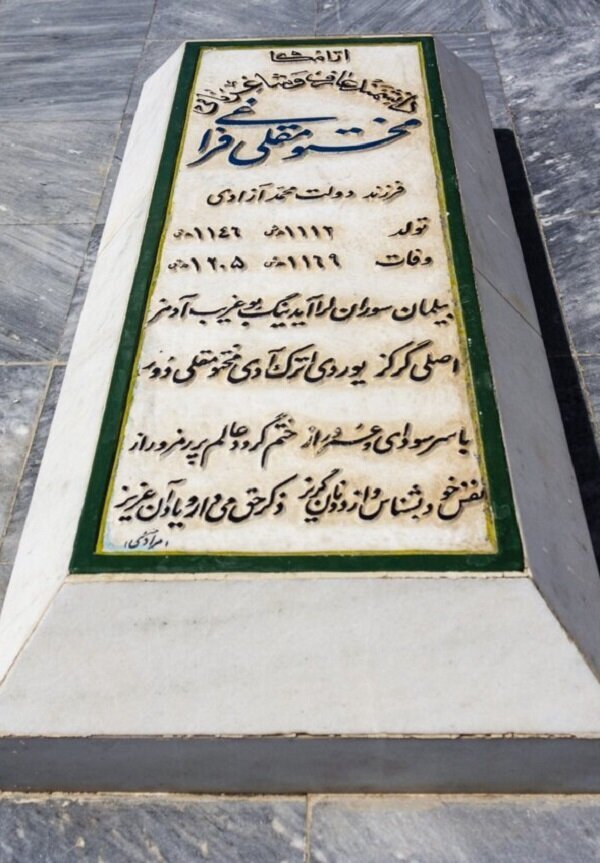 آرامگاه
دانشمند عارف و شاعر
مختومقلی فراغی
فرزند دولت محمد آزادی
تولد ۱۱۱۲ ه‍ش ۱۱٤٦ ه‍ق
وفات ۱۱٦۹ ه‍ش ۱۲۰٥ ه‍ق
بیلمان سوران لرا آیدینگ بو غریب آدمنز
اصلی گرکز یوردی اترک آدی مختومقلی دور
با سر سودای و از ختم گردد عالم پر رمز و راز
نفس خود بشناس و از دونان گریز ذکر حق می دار و یاد آن عزیز